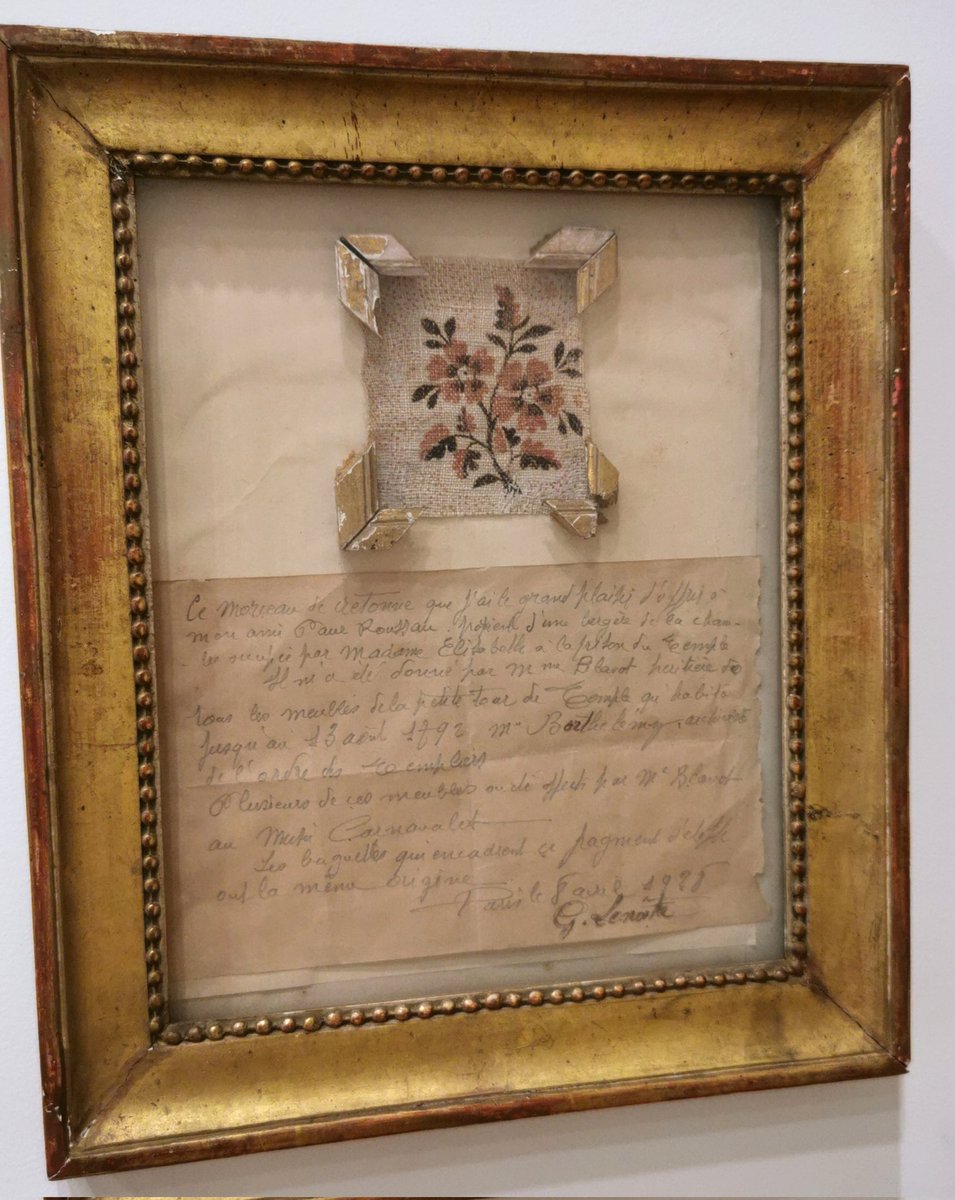 Ce morceau de cretonne que j'ai le grand plaisir d'offrir à
mon ami Paul Rousseau, provient d'une bergère de la cham-
bre occupée par Madame Elisabeth à la prison du Temple
Il m'a été donné par Mme Blavot héritière de
tous les meubles de la petite tour du Temple qu'habita
jusqu'au 13 août 1792 Mr Barthelemy, archiviste
de l'ordre des Templiers
Plusieurs de ces meubles ont été offerts par Me Blavot
au Musée Carnavalet
Les baguettes qui encadrent ce fragment d'étoffe
ont la même origine
Paris le avril
G. Lenôtre